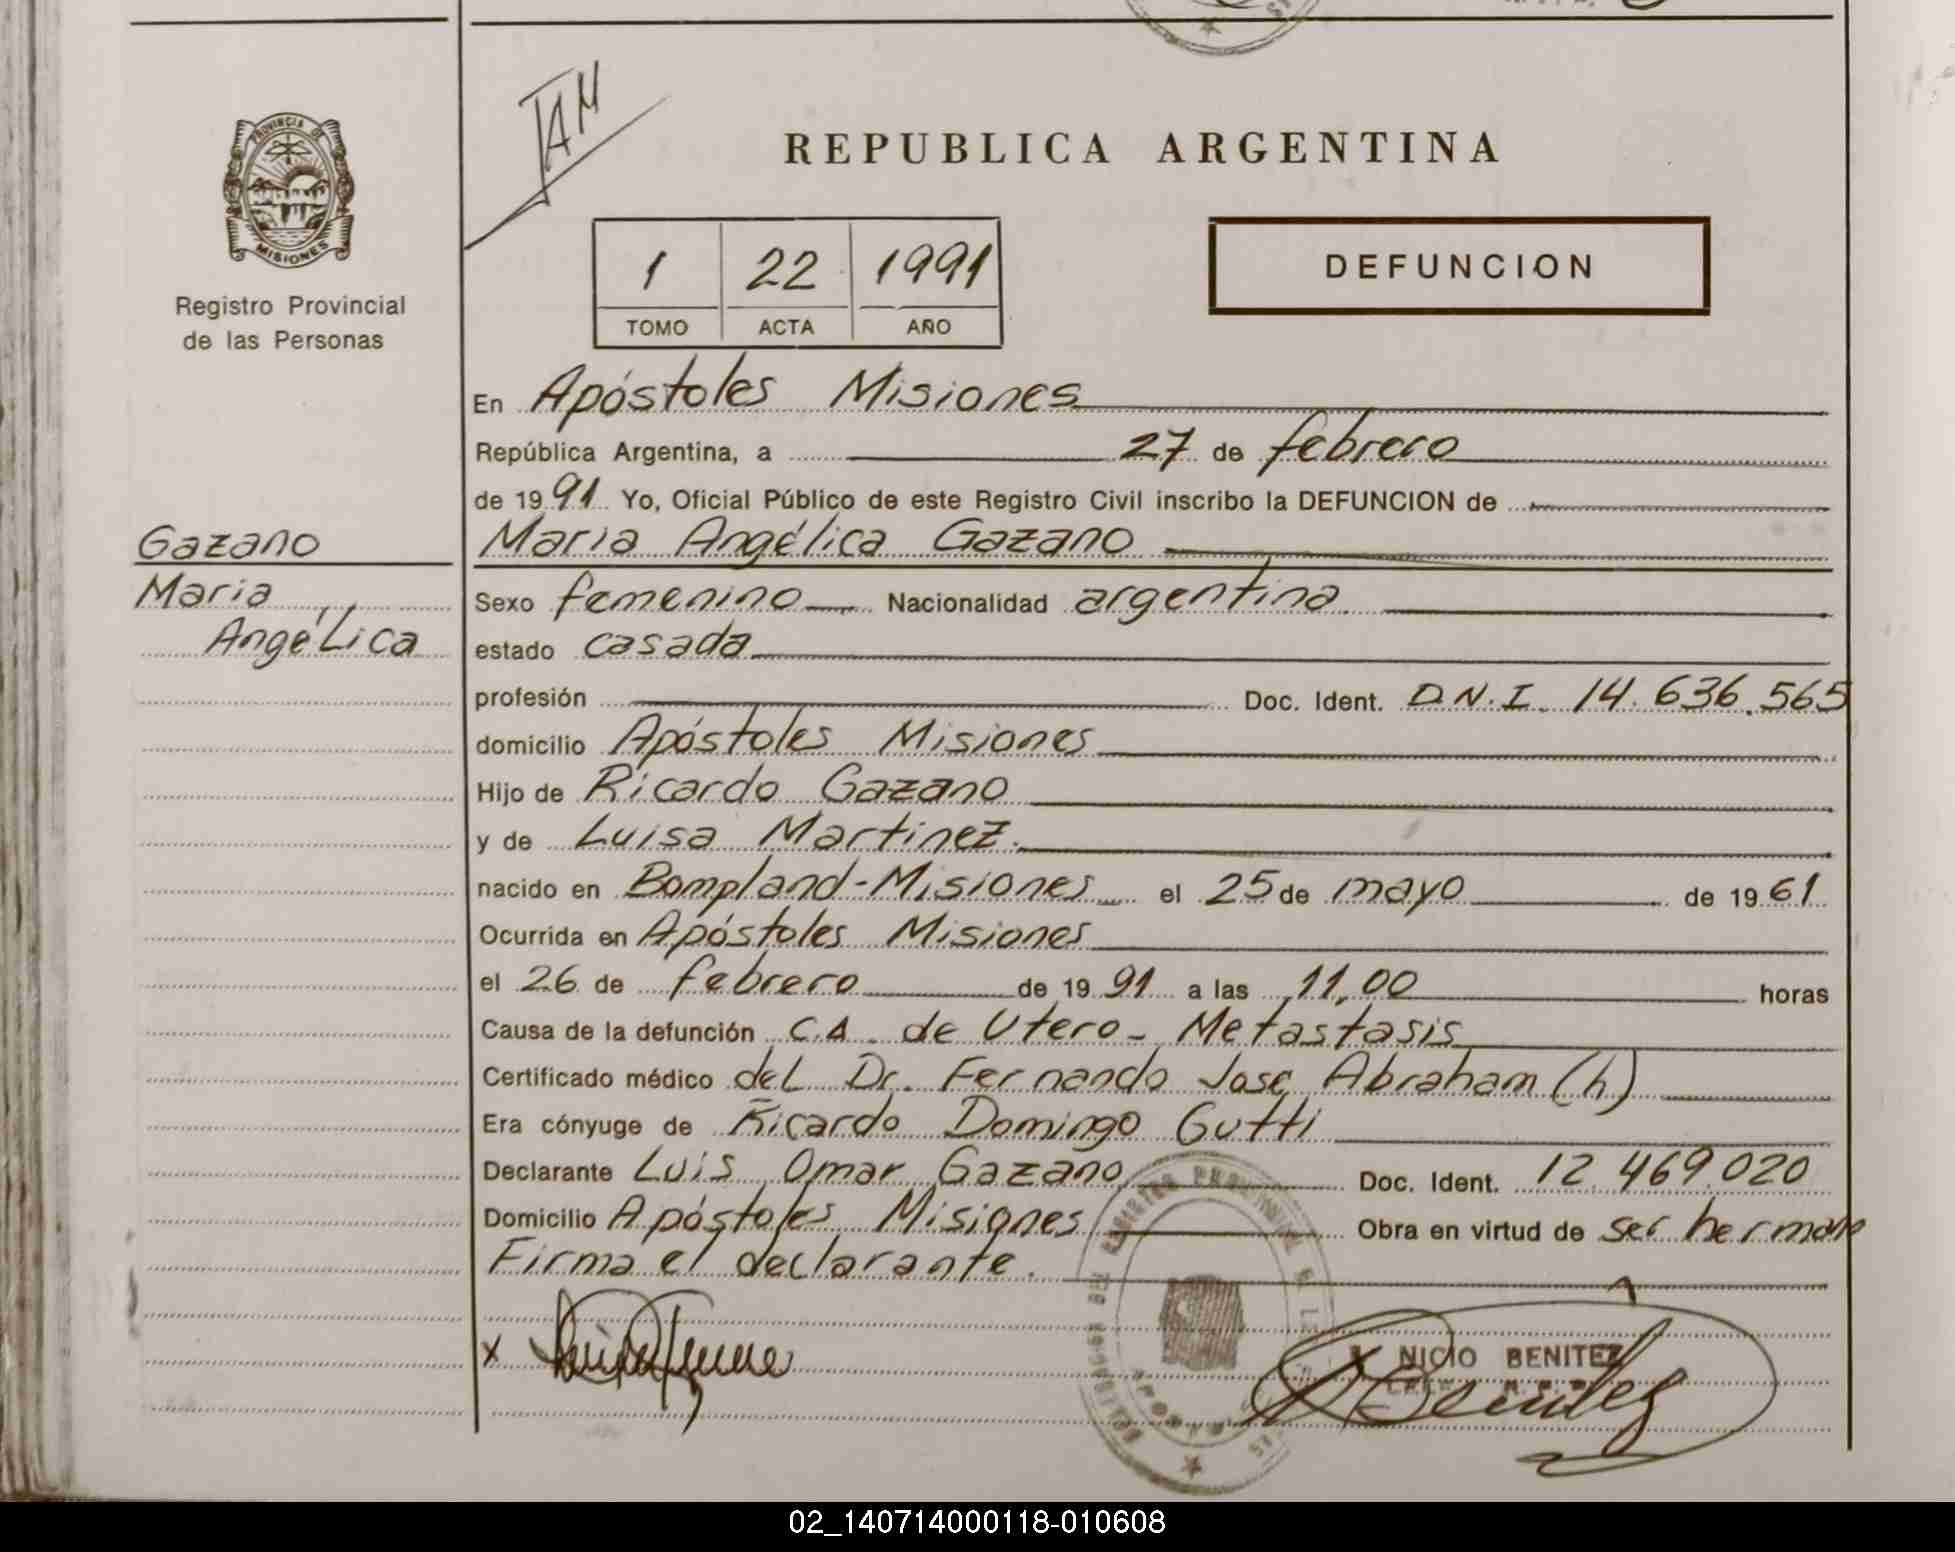 JAM
REPUBLICA ARGENTINA
PROVINCIA DE
MISIONES
Registro Provincial
de las Personas
1 22 1991
TOMO ACTA AÑO
DEFUNCION
En Apóstoles Misiones
República Argentina, a 27 de febrero
de 1991 Yo, Oficial Público de este Registro Civil inscribo la DEFUNCION de
Gazano
Maria
Angélica
Maria Angélica Gazano
Sexo femenino Nacionalidad argentina
estado casada
profesión Doc. Ident. D.N.I. 14.636.565
domicilio Apóstoles Misiones
Hijo de Ricardo Gazano
y de Luisa Martinez.
nacido en Bompland-Misiones el 25 de mayo de 1961
Ocurrida en Apóstoles Misiones
el 26 de febrero de 1991 a las 11,00 horas
Causa de la defunción C.A. de Utero - Metastasis
Certificado médico del Dr. Fernando José Abraham (h)
Era cónyuge de Ricardo Domingo Gutti
Declarante Luis Omar Gazano Doc. Ident. 12.469.020
Domicilio Apóstoles Misiones Obra en virtud de ser hermano
Firma el declarante.
x
NICIO BENITEZ
02_140714000118-010608